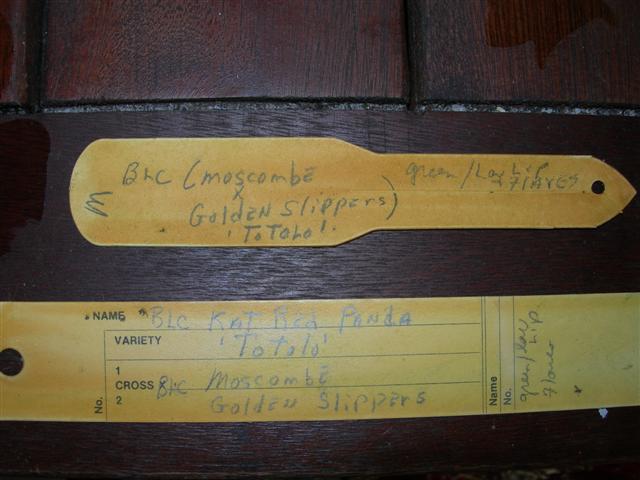 BLC (Moscombe
X
Golden Slippers)
'ToTolo'.
M
green/Lav Lip
+ 7lARES
NAME BLC KAT Red PANDA
VARIETY 'ToTolo'
1
CROSS BLC Moscombe
2 Golden Slippers
No.
Name
No.
green/lav
Lip
7lares